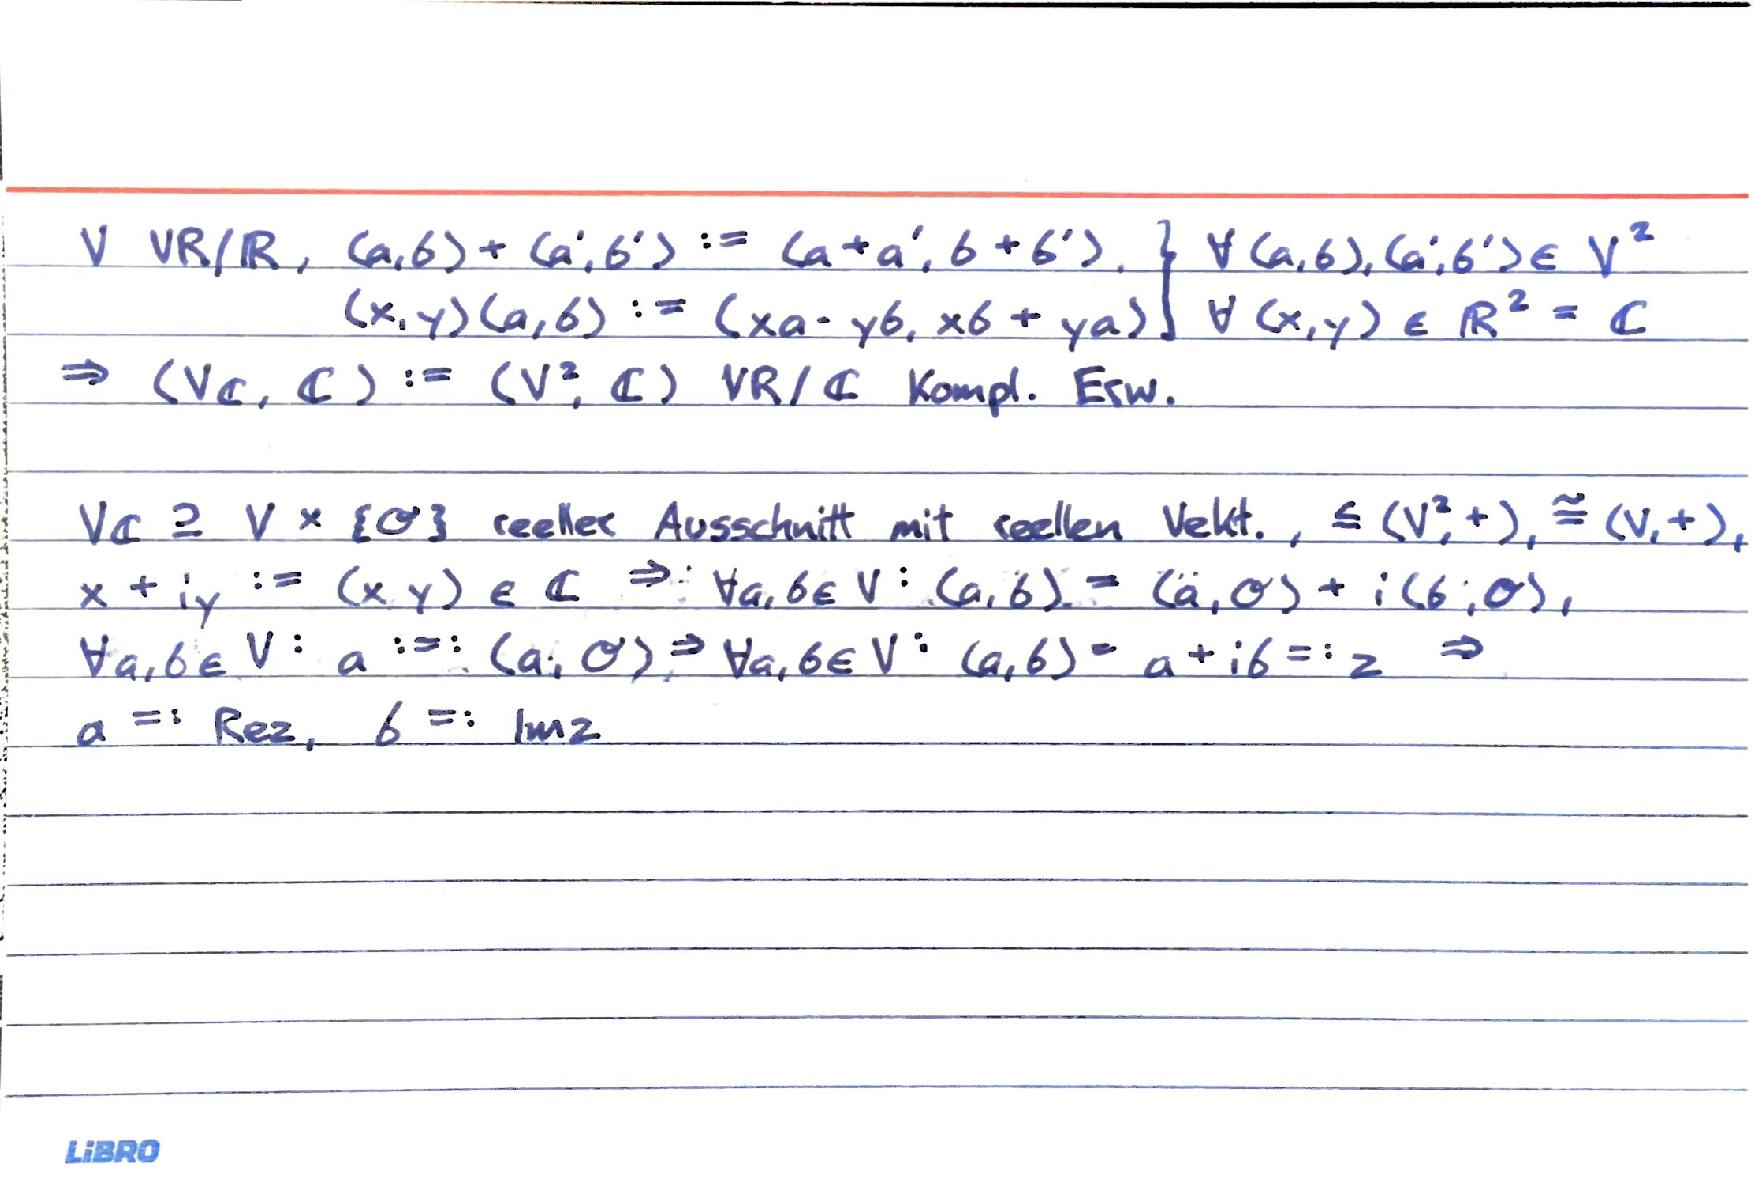 V VR/ℝ, (a,b) + (a',b') := (a+a', b+b'), } ∀ (a,b), (a',b') ∈ V²
(x,y)(a,b) := (xa - yb, xb + ya) } ∀ (x,y) ∈ ℝ² = ℂ
⇒ (Vℂ, ℂ) := (V², ℂ) VR/ℂ Kompl. Erw.
Vℂ ⊇ V × {σ} reeller Ausschnitt mit reellen Vekt., ≤ (V²,+), ≅ (V,+),
x + iy := (x,y) ∈ ℂ ⇒: ∀a,b∈V: (a,b) = (a,σ) + i(b,σ),
∀a,b∈V: a :=: (a,σ) ⇒ ∀a,b∈V: (a,b) = a + ib =: z ⇒
a =: Rez, b =: Imz
LiBRO